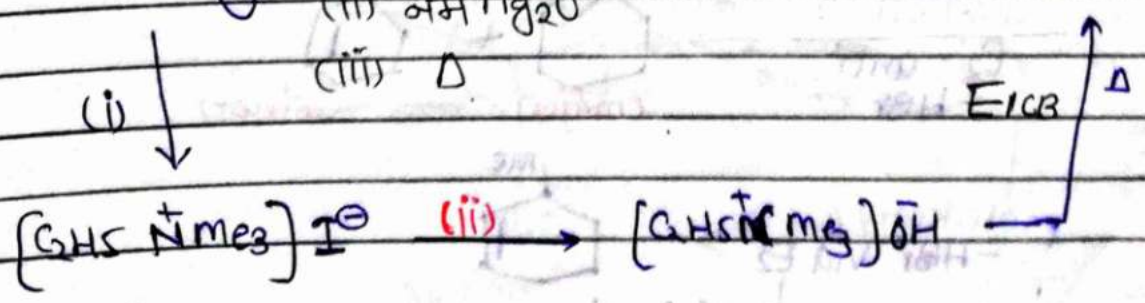 (ii) नम Ag2O
(iii) Δ
(i)
E1CB Δ
[C2H5 N+ Me3] I⊖ (ii) → [C2H5N+ Me3] ŌH